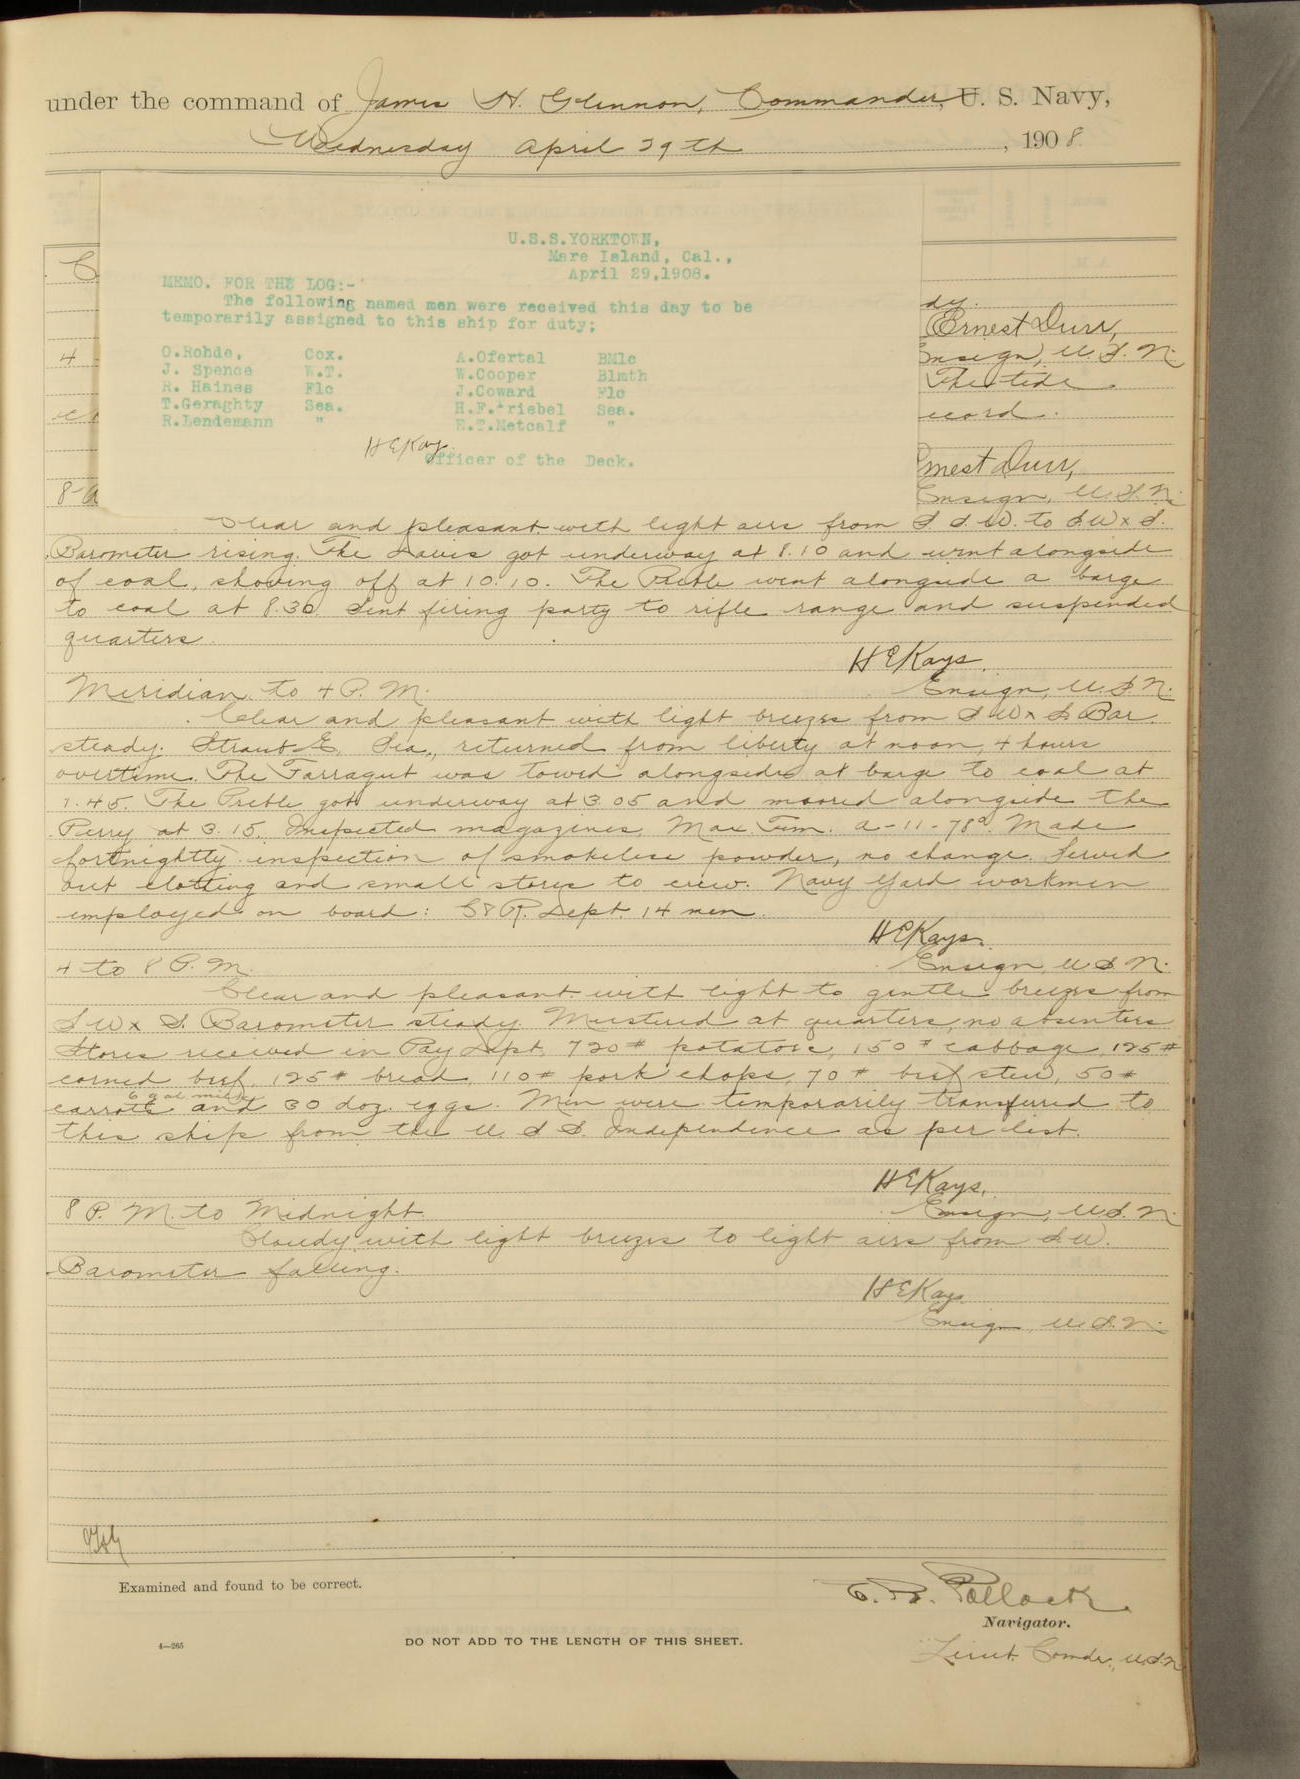 under the command of James H. Glennon, Commander, U. S. Navy,
Wednesday April 29th, 1908.
U.S.S.YORKTOWN,
Mare Island, Cal.,
April 29,1908.
MEMO. FOR THE LOG:-
The following named men were received this day to be
temporarily assigned to this ship for duty;
O.Rohde, Cox. A.Ofertal BM1c
J. Spence W.T. W.Cooper Blmth
R. Haines F1c J.Coward F1c
T.Geraghty Sea. H.F.Kriebel Sea.
R.Lendemann " E.T.Metcalf "
HEKays.
Officer of the Deck.
C
dy.
Ernest Durr,
4 Ensign, U.S.N.
The tide
ecord.
Ernest Durr,
8-a Ensign, U.S.N.
Clear and pleasant with light airs from S.S.W. to S.W x S.
Barometer rising. The Davis got underway at 8.10 and went alongside
of coal, shoving off at 10.10. The Preble went alongside a barge
to coal at 8.30. Sent firing party to rifle range and suspended
quarters.
HEKays.
Meridian to 4 P.M. Ensign, U.S.N.
Clear and pleasant with light breezes from S.W x S. Bar.
steady. Straub E. Sea., returned from liberty at noon, 4 hours
overtime. The Farragut was towed alongside at barge to coal at
1.45. The Preble got underway at 3.05 and moored alongside the
Perry at 3.15. Inspected magazines, Max. Tem. A-11-78°. Made
fortnightly inspection of smokeless powder, no change. Served
out clothing and small stores to crew. Navy Yard workmen
employed on board: C&R. Dept. 14 men.
HEKays.
4 to 8 P.M. Ensign, U.S.N.
Clear and pleasant with light to gentle breezes from
S.W x S. Barometer steady. Mustered at quarters, no absentees.
Stores received in Pay Dept. 720# potatoes, 150# cabbage, 125#
corned beef, 125# bread, 110# pork chops, 70# beef stew, 50#
6 gal. milk
carrots and 30 doz. eggs. Men were temporarily transferred to
this ship from the U.S.S. Independence as per list.
HEKays.
8 P.M. to Midnight. Ensign, U.S.N.
Cloudy with light breezes to light airs from S.W.
Barometer falling.
HEKays
Ensign, U.S.N.
Examined and found to be correct.
E. R. Pollock
Navigator.
4—265 DO NOT ADD TO THE LENGTH OF THIS SHEET.
Lieut. Comdr., U.S.N.